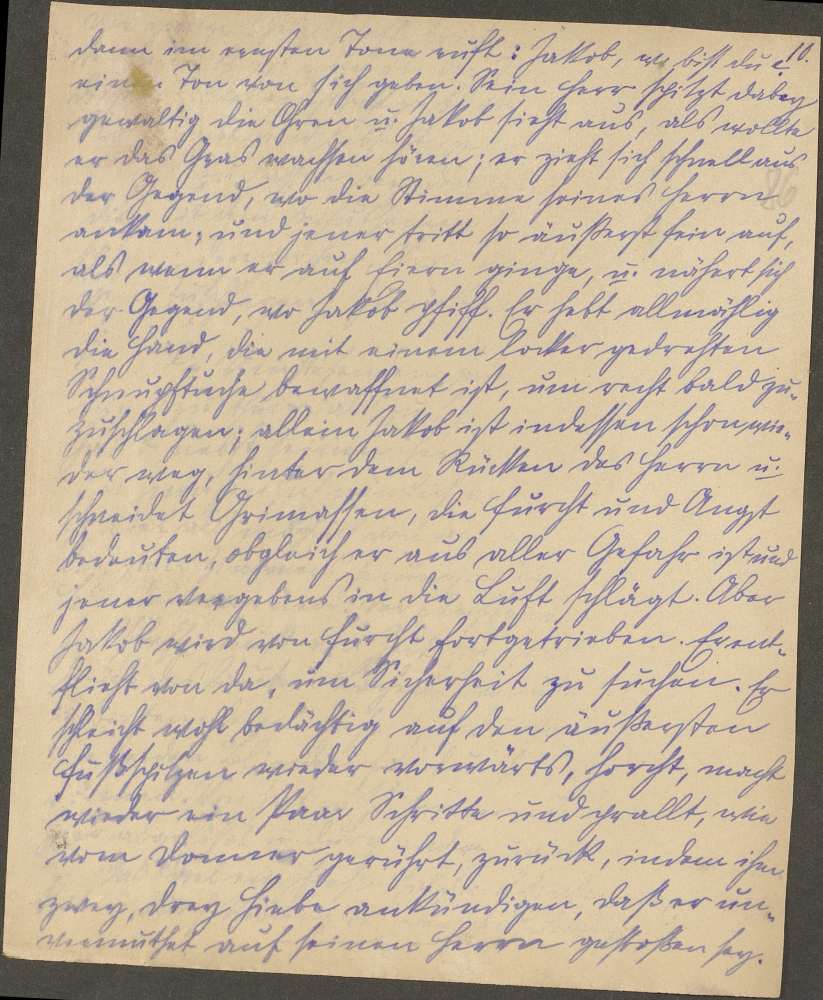 10.
dann im ernsten Tone ruft: Jakob, wo bist du?
einen Ton von sich geben. Sein Herr spitzt dabey
gewaltig die Ohren u. Jakob sieht aus, als wollte
er das Gras wachsen hören; er zieht sich schnell aus
der Gegend, wo die Stimme seines Herrn
ankam; und jener tritt so äußerst fein auf,
als wenn er auf Eiern ginge, u. nähert sich
der Gegend, wo Jakob pfiff. Er hebt allmählig
die Hand, die mit einem locker gedrehten
Schnupftuche bewaffnet ist, um recht bald zu-
zuschlagen; allein Jakob ist indessen schon wie-
der weg, hinter dem Rücken des Herrn u.
schneidet Grimassen, die Furcht und Angst
bedeuten, obgleich er aus aller Gefahr ist und
jener vergebens in die Luft schlägt. Aber
Jakob wird von Furcht fortgetrieben. Er ent-
flieht von da, um Sicherheit zu suchen. Er
schleicht wohl bedächtig auf den äußersten
Fußspitzen wieder vorwärts, horcht, macht
wieder ein Paar Schritte und prallt, wie
vom Donner gerührt, zurück, indem ihm
zwey, drey Hiebe ankündigen, daß er un-
vermuthet auf seinen Herrn gestoßen sey.